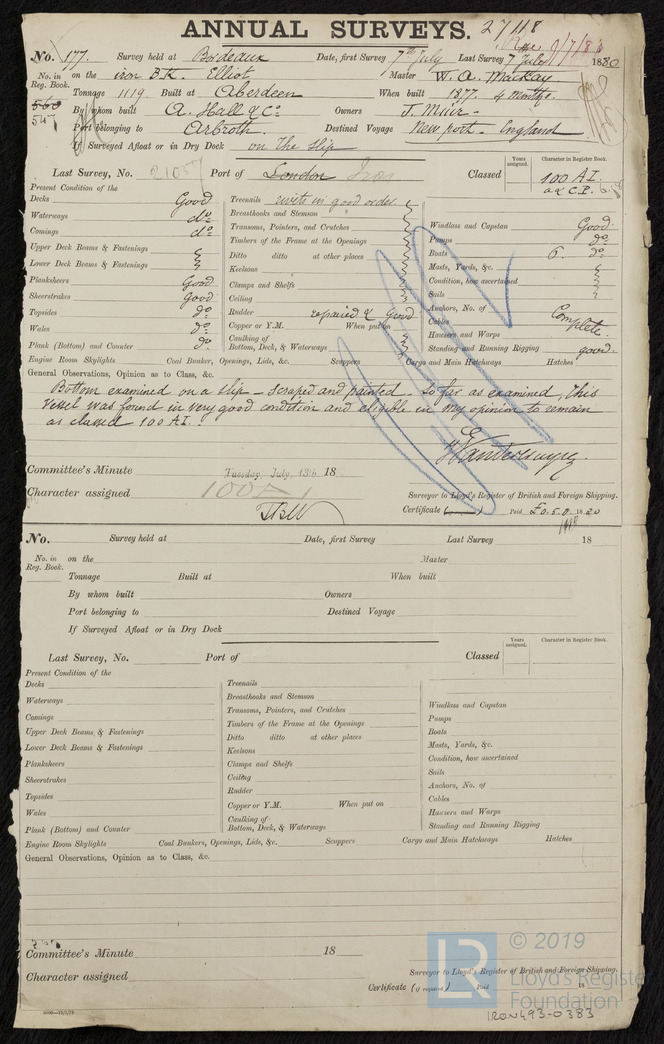 ANNUAL SURVEYS. 27118
No. 177. Survey held at Bordeaux Date, first Survey 7th July Last Survey 7 July 1880
No. in Reg. Book. on the iron Bk. Elliot Master W. A. Mackay
560 Tonnage 1119 Built at Aberdeen When built 1877. 4 Months.
547 By whom built A. Hall & Co Owners J. Muir
Port belonging to Arbroth. Destined Voyage Newport - England
If Surveyed Afloat or in Dry Dock on The slip
Last Survey, No. 21057 Port of London Iron Classed Years assigned. Character in Register Book. 100 A.I.
Present Condition of the
Decks Good
Waterways do
Comings do
Upper Deck Beams & Fastenings
Lower Deck Beams & Fastenings
Planksheers Good
Sheerstrakes Good
Topsides do
Wales do
Plank (Bottom) and Counter do
Treenails rivets in good order
Breasthooks and Stemson
Transoms, Pointers, and Crutches
Timbers of the Frame at the Openings
Ditto ditto at other places
Keelsons
Clamps and Shelfs
Ceiling
Rudder repaired & Good
Copper or Y.M. When put on
Caulking of Bottom, Deck, & Waterways
Windlass and Capstan Good
Pumps do
Boats 6. do
Masts, Yards, &c.
Condition, how ascertained
Sails
Anchors, No. of
Cables Complete
Hawsers and Warps
Standing and Running Rigging good.
Engine Room Skylights Coal Bunker, Openings, Lids, &c. Scuppers Cargo and Main Hatchways Hatches
General Observations, Opinion as to Class, &c.
Bottom examined on a slip - scraped and painted. So far as examined, this
Vessel was found in very good condition and eligible in my opinion to remain
as classed 100 A.I.
Committee's Minute Tuesday, July, 13th 18
Character assigned 100A1
Surveyor to Lloyd's Register of British and Foreign Shipping.
Certificate Paid £0.5.0 1880
No. Survey held at Date, first Survey Last Survey 18
No. in Reg. Book. on the Master
Tonnage Built at When built
By whom built Owners
Port belonging to Destined Voyage
If Surveyed Afloat or in Dry Dock
Last Survey, No. Port of Classed Years assigned. Character in Register Book.
Present Condition of the
Decks
Waterways
Comings
Upper Deck Beams & Fastenings
Lower Deck Beams & Fastenings
Planksheers
Sheerstrakes
Topsides
Wales
Plank (Bottom) and Counter
Treenails
Breasthooks and Stemson
Transoms, Pointers, and Crutches
Timbers of the Frame at the Openings
Ditto ditto at other places
Keelsons
Clamps and Shelfs
Ceiling
Rudder
Copper or Y.M. When put on
Caulking of Bottom, Deck, & Waterways
Windlass and Capstan
Pumps
Boats
Masts, Yards, &c.
Condition, how ascertained
Sails
Anchors, No. of
Cables
Hawsers and Warps
Standing and Running Rigging
Engine Room Skylights Coal Bunkers, Openings, Lids, &c. Scuppers Cargo and Main Hatchways Hatches
General Observations, Opinion as to Class, &c.
Committee's Minute 18
Character assigned
Surveyor to Lloyd's Register of British and Foreign Shipping.
Certificate (if required) Paid 18
LR © 2019
Lloyd's Register
Foundation
IRON493-0383